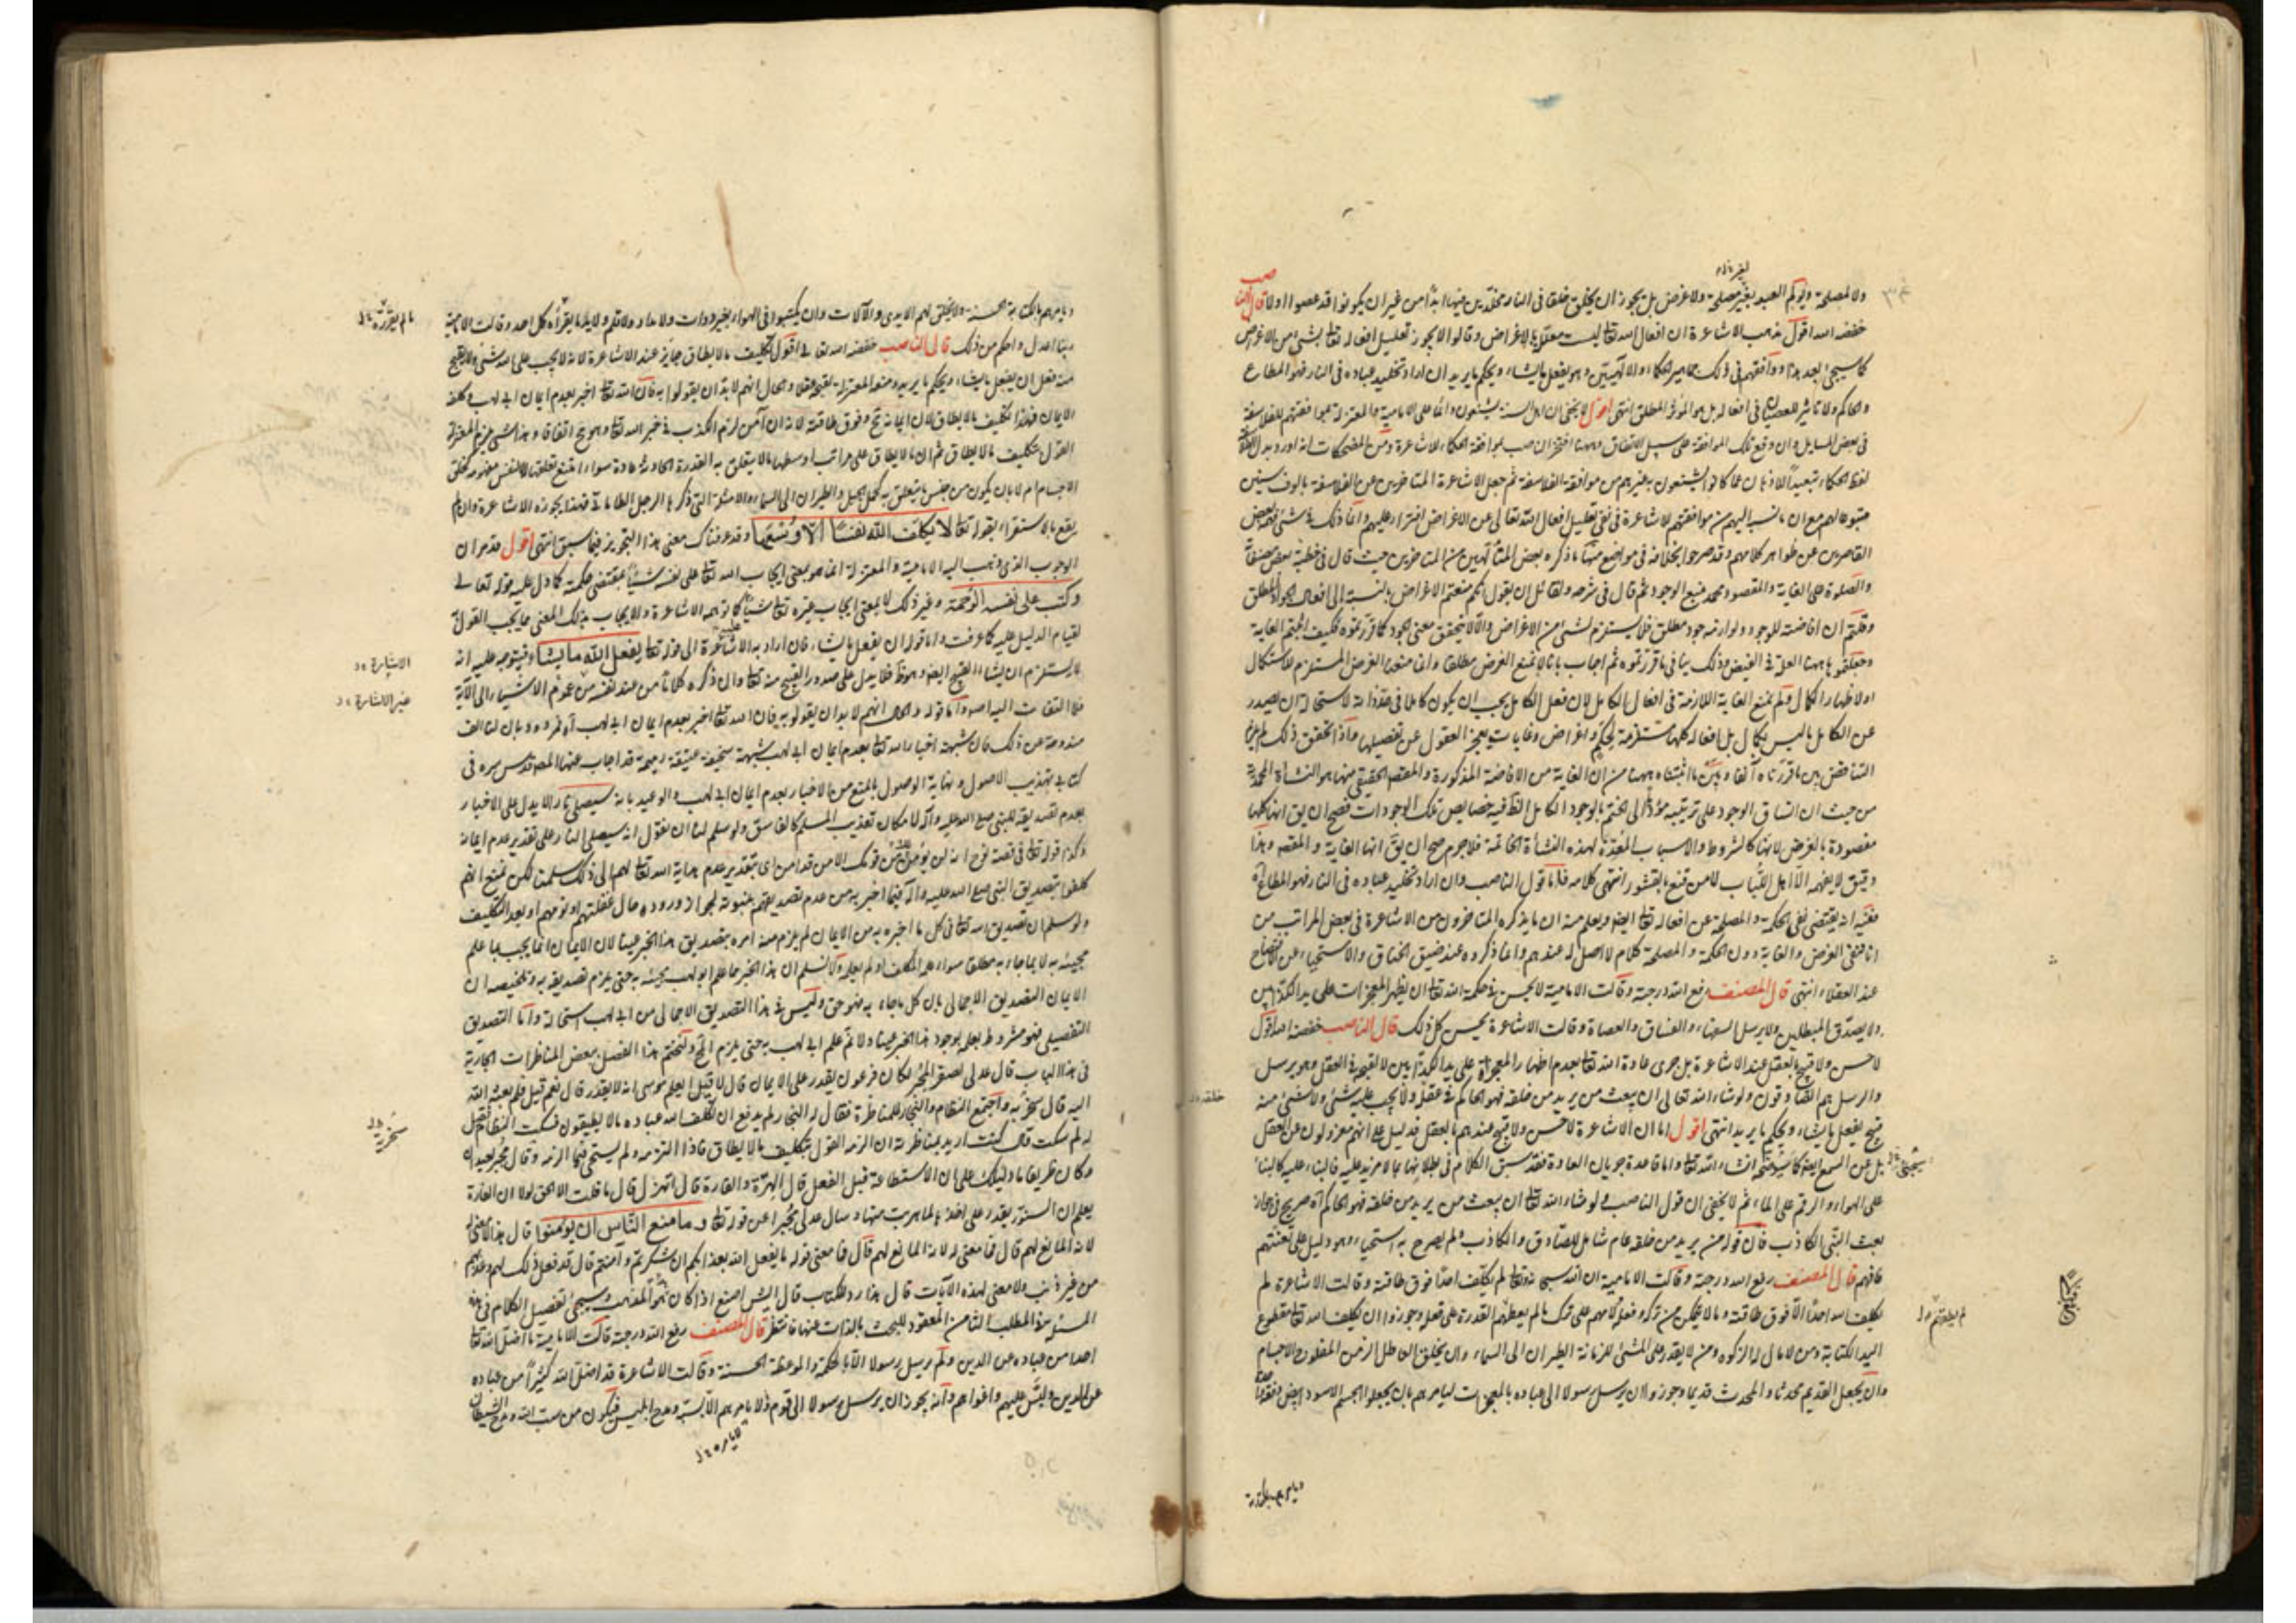 ولا لمصلحة ويؤلم العبيد بغير مصلحة ولا غرض بل يجوز ان يخلق خلقا في النار مخلدين فيها ابدا من غير ان يكونوا قد عصوا اولا قال الناصب
خفضه الله اقول مذهب الاشاعرة ان افعال الله تعالى ليست معللة بالاغراض وقالوا لا يجوز تعليل افعاله تعالى بشئ من الاغراض
كما سيجئ بعد هذا ووافقهم في ذلك جماهير الحكماء والالهيين وهو يفعل ما يشاء ويحكم ما يريد ان اراد تخليد عباده في النار فهو المطاع
والحاكم ولا تاثير للعصيان في افعاله بل هو المؤثر المطلق انتهى اقول لا يخفى ان اهل السنة يشنعون دائما على الامامية والمعتزلة بموافقتهم للفلاسفة
في بعض المسايل وان وقع تلك الموافقة على سبيل الاتفاق وههنا افتخر الناصب بموافقة الحكماء للاشاعرة ومن المضحكات انه اورد بدل الفلاسفة
لفظ الحكماء تبعيدا للاذهان عما كانوا يشنعون به غيرهم من موافقة الفلاسفة ثم جعل الاشاعرة المتاخرين عن الفلاسفة بالوف سنين
متبوعا لهم مع ان ما نسبه اليهم من موافقتهم للاشاعرة في نفي تعليل افعال الله تعالى عن الاغراض افتراء عليهم وانما ذلك شئ فهمه بعض
القاصرين عن ظواهر كلامهم وقد صرحوا بخلافه في مواضع منها ما ذكره بعض المتألهين من المتاخرين حيث قال في خطبة بعض مصنفاته
والصلوة على الغاية والمقصود محمد منبع الوجود ثم قال في شرحه ولقائل ان يقول انكم منعتم الاغراض بالنسبة الى افعال الجواد المطلق
وقلتم ان افاضته للوجود ولوازمه جود مطلق فلا يستلزم لشئ من الاغراض والا لا يتحقق معنى الجود كما قررتموه فكيف اثبتم الغاية
وجعلتموها ههنا العلة في الفيض وذلك ينافي ما قررتموه ثم اجاب بانا لا نمنع الغرض مطلقا وانما منعنا الغرض المستلزم للاستكمال
اولا ظهار الكمال ولم نمنع الغاية اللازمة في افعال الكامل لان فعل الكامل يجب ان يكون كاملا في حد ذاته لاستحالة ان يصدر
عن الكامل ما ليس بكمال بل افعاله كلها مستلزمة لحكم واغراض وغايات يعجز العقول عن تفصيلها واذا تحقق ذلك لم يلزم
التناقض بين ما قررناه آنفا وبين ما اثبتناه ههنا من ان الغاية من الافاضة المذكورة والمقصد الحقيقي منها هو النشأة المحمدية
من حيث ان انساق الوجود على ترتيبه مؤد الى الختم بالوجود الكامل الظاهر فيه خصايص تلك الوجودات فصح ان يق انها كلها
مقصودة بالعرض لانها كالشروط والاسباب المعدة لهذه النشأة الخاتمة فلا جرم صح ان يق انها الغاية والمقصد وهذا
دقيق لا يفهمه الا اهل اللباب لا من قنع بالقشور انتهى كلامه فاما قول الناصب وان اراد تخليد عباده في النار فهو المطاع آه
ففيه انه يقتضي نفي الحكمة والمصلحة عن افعاله تعالى ايضا ويعلم منه ان ما يذكره المتاخرون من الاشاعرة في بعض المراتب من
انا ننفي الغرض والغاية دون الحكمة والمصلحة كلام لا اصل له عندهم وانما ذكروه عند ضيق الخناق والاستحياء عن افتضاح
عند العقلاء انتهى قال المصنف رفع الله درجته وقالت الامامية لا يحسن في حكمة الله تعالى ان يظهر المعجزات على يد الكذابين
ولا يصدق المبطلين ولا يرسل السفهاء والفساق والعصاة وقالت الاشاعرة يحسن كل ذلك قال الناصب خفضه الله اقول
لا حسن ولا قبح بالعقل عند الاشاعرة بل جرى عادة الله تعالى بعدم اظهار المعجزة على يد الكذابين لا لقبحه في العقل وهو يرسل
والرسل هم الصادقون ولو شاء الله تعالى ان يبعث من يريد من خلقه فهو الحاكم في خلقه ولا يجب عليه شئ ولا شئ منه
قبيح يفعل ما يشاء ويحكم ما يريد انتهى اقول اما ان الاشاعرة لا حسن ولا قبح عندهم بالعقل فدليل على انهم معزولون عن العقل
بل عن السمع ايضا كما سيتضح انشاء الله تعالى واما قاعدة جريان العادة فقد سبق الكلام في بطلانها بما لا مزيد عليه فالبناء عليه كالبناء
على الهواء والرقم على الماء ثم لا يخفى ان قول الناصب ولو شاء الله تعالى ان يبعث من يريد من خلقه فهو الحاكم آه صريح في جواز
بعث النبي الكاذب فان قوله من يريد من خلقه عام شامل للصادق والكاذب ولم يصرح به استحياء وهو دليل على لعنتهم
فافهم قال المصنف رفع الله درجته وقالت الامامية ان الله سبحانه وتعالى لم يكلف احدا فوق طاقته وقالت الاشاعرة لم
يكلف الله احدا الا فوق طاقته وما لا يتمكن من تركه وفعله ولامهم على ترك ما لم يعطهم القدرة على فعله وجوزوا ان يكلف الله تعالى مقطوع
اليد الكتابة ومن لا مال له الزكوة ومن لا يقدر على المشي للزمانة الطيران الى السماء وان يكلف العاطل الزمن المفلوج خلق الاجسام
وان يجعل القديم محدثا والمحدث قديما وجوزوا ان يرسل رسولا الى عباده بالمعجزات ليامرهم بان يجعلوا الجسم الاسود ابيض دفعة واحدة
ويامرهم بالكتابة
ويامرهم بالكتابة الحسنة ولا يخلق لهم الايدي والآلات وان يكتبوا في الهواء بغير دوات ولا مداد ولا قلم ولا يد ما يقرأه كل احد وقالت الامامية
ربنا اعدل واحكم من ذلك قال الناصب خفضه الله تعالى اقول تكليف ما لا يطاق جايز عند الاشاعرة لانه لا يجب على الله شئ ولا يقبح
منه فعل ان يفعل ما يشاء ويحكم ما يريد ومنعه المعتزلة لقبحه عقلا والحال انهم لا بد ان يقولوا به فان الله تعالى اخبر بعدم ايمان ابي لهب وكلفه
الايمان فهذا تكليف ما لا يطاق لان ايمانه مح وفوق طاقته لانه ان آمن لزم الكذب في خبر الله تعالى وهو مح اتفاقا وهذا شئ يلزم المعتزلة
القول بتكليف ما لا يطاق ثم ان ما لا يطاق على مراتب اوسطها ما لا يتعلق به القدرة الحادثة عادة سواء امتنع تعلقها لا لنفس مفهومه كخلق
الاجسام ام لا بان يكون من جنس ما يتعلق به كحمل الجبل والطيران الى السماء والامثلة التي ذكرها الرجل الطاماتي فهذا يجوزه الاشاعرة وان لم
يقع بالاستقراء لقوله تعالى لا يكلف الله نفسا الا وسعها وقد عرفناك معنى هذا التجويز فيما سبق انتهى اقول قد مر ان
الوجوب الذي ذهب اليه الامامية والمعتزلة انما هو بمعنى ايجاب الله تعالى على نفسه شيئا بمقتضى حكمته كما دل عليه قوله تعالى
وكتب على نفسه الرحمة وغير ذلك لا بمعنى ايجاب غيره تعالى شيئا كما توهمه الاشاعرة والايجاب بذلك المعنى مما يجب القول
لقيام الدليل عليه كما عرفت واما قوله ان يفعل ما يشاء فان اراد به الاشارة الى قوله تعالى يفعل الله ما يشاء فيتوجه عليه انه
لا يستلزم ان يشاء القبيح ايضا وهو ظ فلا يدل على صدور القبيح منه تعالى وان ذكره كلاما من عند نفسه من غير الاشارة الى الآية
فلا التفات اليه اصلا واما قوله والحال انهم لا بد ان يقولوا به فان الله تعالى اخبر بعدم ايمان ابي لهب آه فمردود بان لنا الف
مندوحة عن ذلك فان شبهة اخبار الله تعالى بعدم ايمان ابي لهب شبهة سخيفة عتيقة رميمة قد اجاب عنها المصنف قدس سره في
كتابي تهذيب الاصول ونهاية الوصول بالمنع من الاخبار بعدم ايمان ابي لهب والوعيد بانه سيصلى نارا لا يدل على الاخبار
بعدم تصديقه للنبي صلى الله عليه وآله لامكان تعذيب المسلم كالفاسق ولو سلم لنا ان نقول انه سيصلى النار على تقدير عدم ايمانه
وكذا قوله تعالى في قصة نوح انه لن يؤمن من قومك الا من قد آمن اي بتقدير عدم هداية الله تعالى لهم الى ذلك سلمنا لكن نمنع انهم
كلفوا بتصديق النبي صلى الله عليه وآله فيما اخبر به من عدم تصديقهم بنبوته لجواز وروده حال غفلتهم او نومهم او بعد التكليف
ولو سلم ان تصديق الله تعالى في كل ما اخبر به من الايمان لم يلزم منه امره بتصديق هذا الخبر عينا لان الايمان انما يجب بما علم
مجيئه به لا بما جاء به مطلقا سواء علمه المكلف او لم يعلمه ولا نسلم ان هذا الخبر مما علم ابو لهب مجيئه به حتى يلزم تصديقه به وتلخيصه ان
الايمان التصديق الاجمالي بان كل ما جاء به فهو حق وليس في هذا التصديق الاجمالي من ابي لهب استحالة واما التصديق
التفصيلي فهو مشروط بعلمه بوجود هذا الخبر عينا ولا نم علم ابي لهب به حتى يلزم المح ولنختم هذا الفصل ببعض المناظرات الجارية
في هذا الباب قال عدلي لصقر المجبر اكان فرعون يقدر على الايمان قال لا قيل ايعلم موسى انه لا يقدر قال نعم قيل فلم بعثه الله
اليه قال سخر به واجتمع النظام والنجار للمناظرة فقال له النجار لم يدفع ان يكلف الله عباده ما لا يطيقون فسكت النظام فقيل
له لم سكت قال كنت اريد بمناظرته ان الزمه القول بتكليف ما لا يطاق فاذا التزمه ولم يستحي فبما الزمه وقال مجبر لعدلي
وكان ظريفا ما دليلك على ان الاستطاعة قبل الفعل قال الهرة والفارة قال اتهزل قال ما قلت الا الحق لولا ان الفارة
يعلم ان السنور يقدر على اخذها لما هربت منها وسال عدلي مجبرا عن قوله تعالى وما منع الناس ان يؤمنوا قال هذا لا معنى له
لانه المانع لهم قال فما معنى قوله ما يفعل الله بعذابكم ان شكرتم وآمنتم قال قد فعل ذلك بهم وعذبهم
من غير ذنب ولا معنى لهذه الآيات قال هذا رد للكتاب قال ايش اصنع اذا كان هو المذهب وسيجئ تفصيل الكلام في هذه
المسئلة في المطلب الثامن المعقود للبحث بالذات عنها فانتظر قال المصنف رفع الله درجته قالت الامامية ما اضل الله تعالى
احدا من عباده عن الدين ولم يرسل رسولا الا بالحكمة والموعظة الحسنة وقالت الاشاعرة قد اضل الله كثيرا من عباده
عن الدين ولبس عليهم واغواهم وانه يجوز ان يرسل رسولا الى قوم ولا يامرهم الا بسبه ومدح ابليس فيكون من سب الله ومدح الشيطان